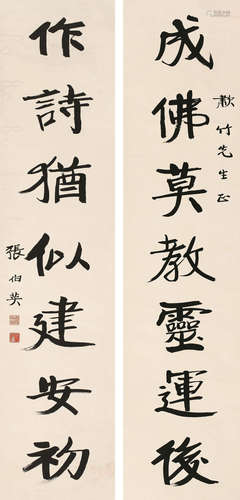 成佛莫教靈運後
歗竹先生正
作詩猶似建安初
張伯英